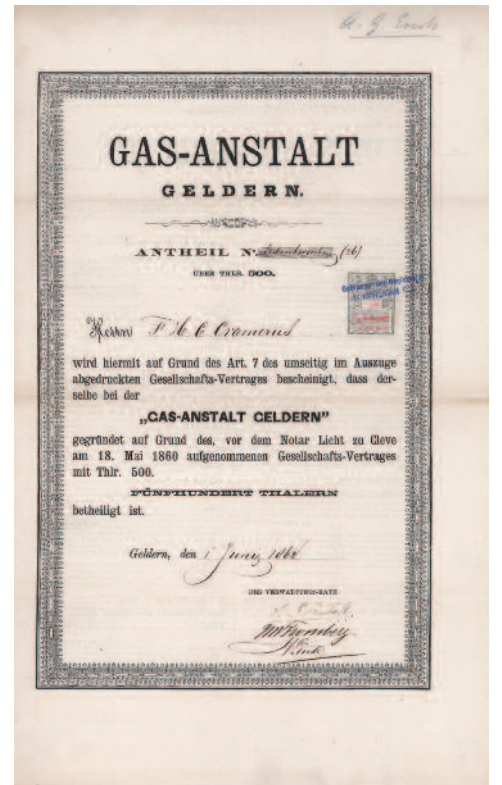 GAS-ANSTALT
GELDERN.
ANTHEIL No (26)
ÜBER THLR. 500.
Herrn F H C Cramerus
wird hiermit auf Grund des Art. 7 des umseitig im Auszuge
abgedruckten Gesellschafts-Vertrages bescheinigt, dass der-
selbe bei der
„GAS-ANSTALT GELDERN"
gegründet auf Grund des, vor dem Notar Licht zu Cleve
am 18. Mai 1860 aufgenommenen Gesellschafts-Vertrages
mit Thlr. 500.
FÜNFHUNDERT THALERN
betheiligt ist.
Geldern, den 1 Juny
DER VERWALTUNGS-RATH